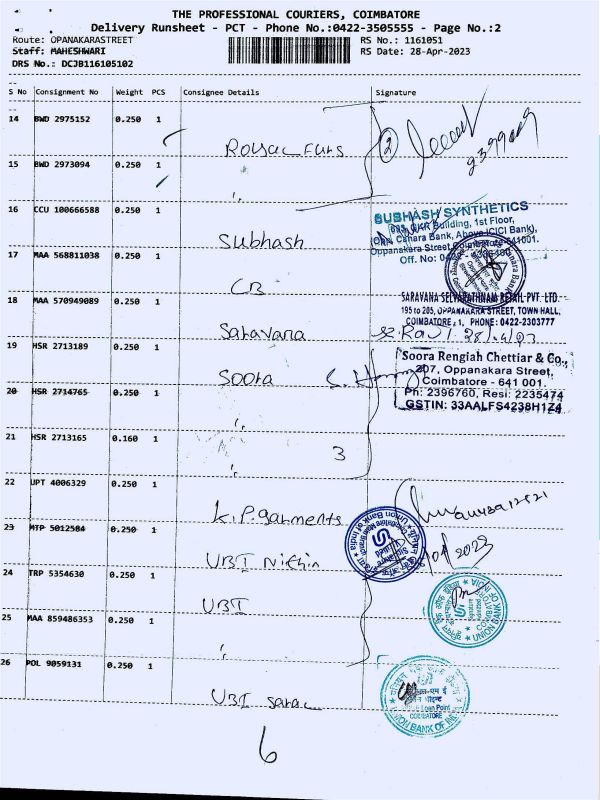 THE PROFESSIONAL COURIERS, COIMBATORE
Delivery Runsheet - PCT - Phone No.:0422-3505555 - Page No.:2
Route: OPANAKARASTREET RS No.: 1161051
Staff: MAHESHWARI RS Date: 28-Apr-2023
DRS No.: DCJB116105102
S No Consignment No Weight PCS Consignee Details Signature
14 BWD 2975152 0.250 1
Royal Furs 2
15 BWD 2973094 0.250 1
"
16 CCU 100666588 0.250 1
Subhash
SUBHASH SYNTHETICS
Building, 1st Floor,
Canara Bank, Above ICICI Bank),
Oppanakara Street, Coimbatore-641001.
Off. No:
17 MAA 568811038 0.250 1
CB
18 MAA 570949089 0.250 1
Saravana
SARAVANA SELVARATHNAM RETAIL PVT. LTD.
195 to 205, OPPANAKARA STREET, TOWN HALL,
COIMBATORE - 1, PHONE: 0422-2303777
19 HSR 2713189 0.250 1
Soora
Soora Rengiah Chettiar & Co.,
207, Oppanakara Street,
Coimbatore - 641 001.
Ph: 2396760, Resi: 2235474
GSTIN: 33AALFS4238H1Z4
20 HSR 2714765 0.250 1
"
21 HSR 2713165 0.160 1
" 3
22 UPT 4006329 0.250 1
K.P. garments
23 MTP 5012584 0.250 1
UBI Nithin
Union Bank of India
24 TRP 5354630 0.250 1
UBI
UNION BANK OF INDIA
COIMBATORE
25 MAA 859486353 0.250 1
"
26 POL 9059131 0.250 1
UBI Saral
Loan Point
COIMBATORE
UNION BANK OF INDIA
6